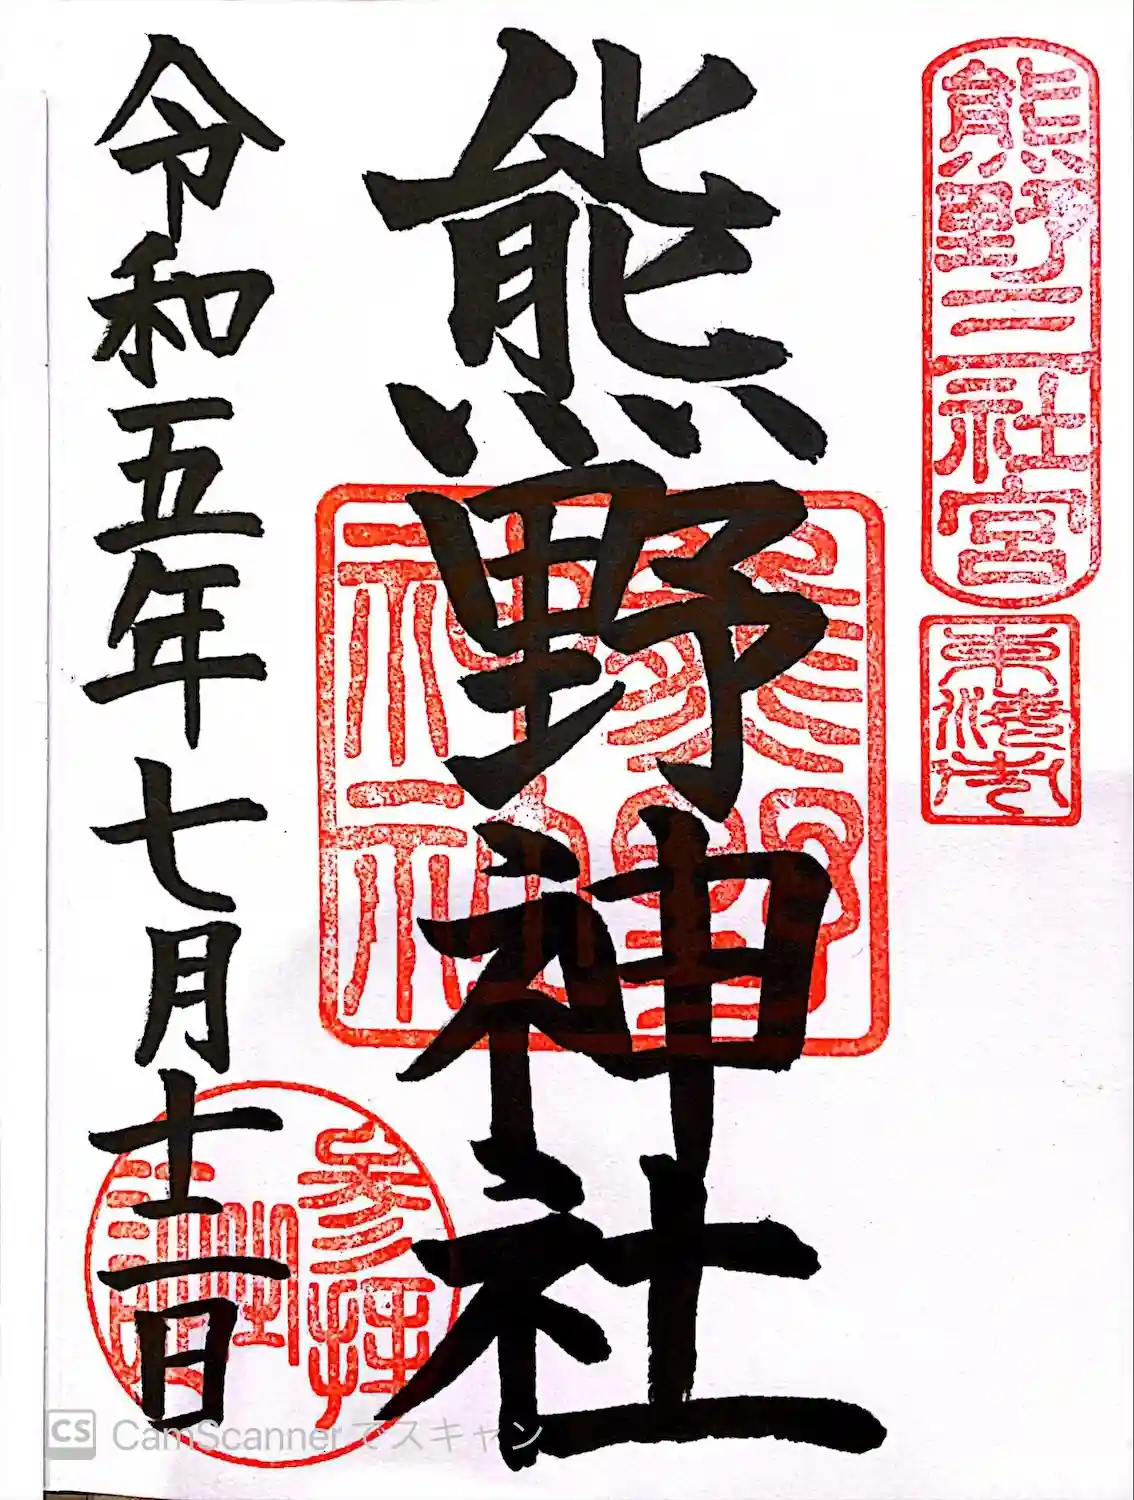 熊野三社宮
熊野神社
令和五年七月十二日
参拝
CS CamScannerでスキャン